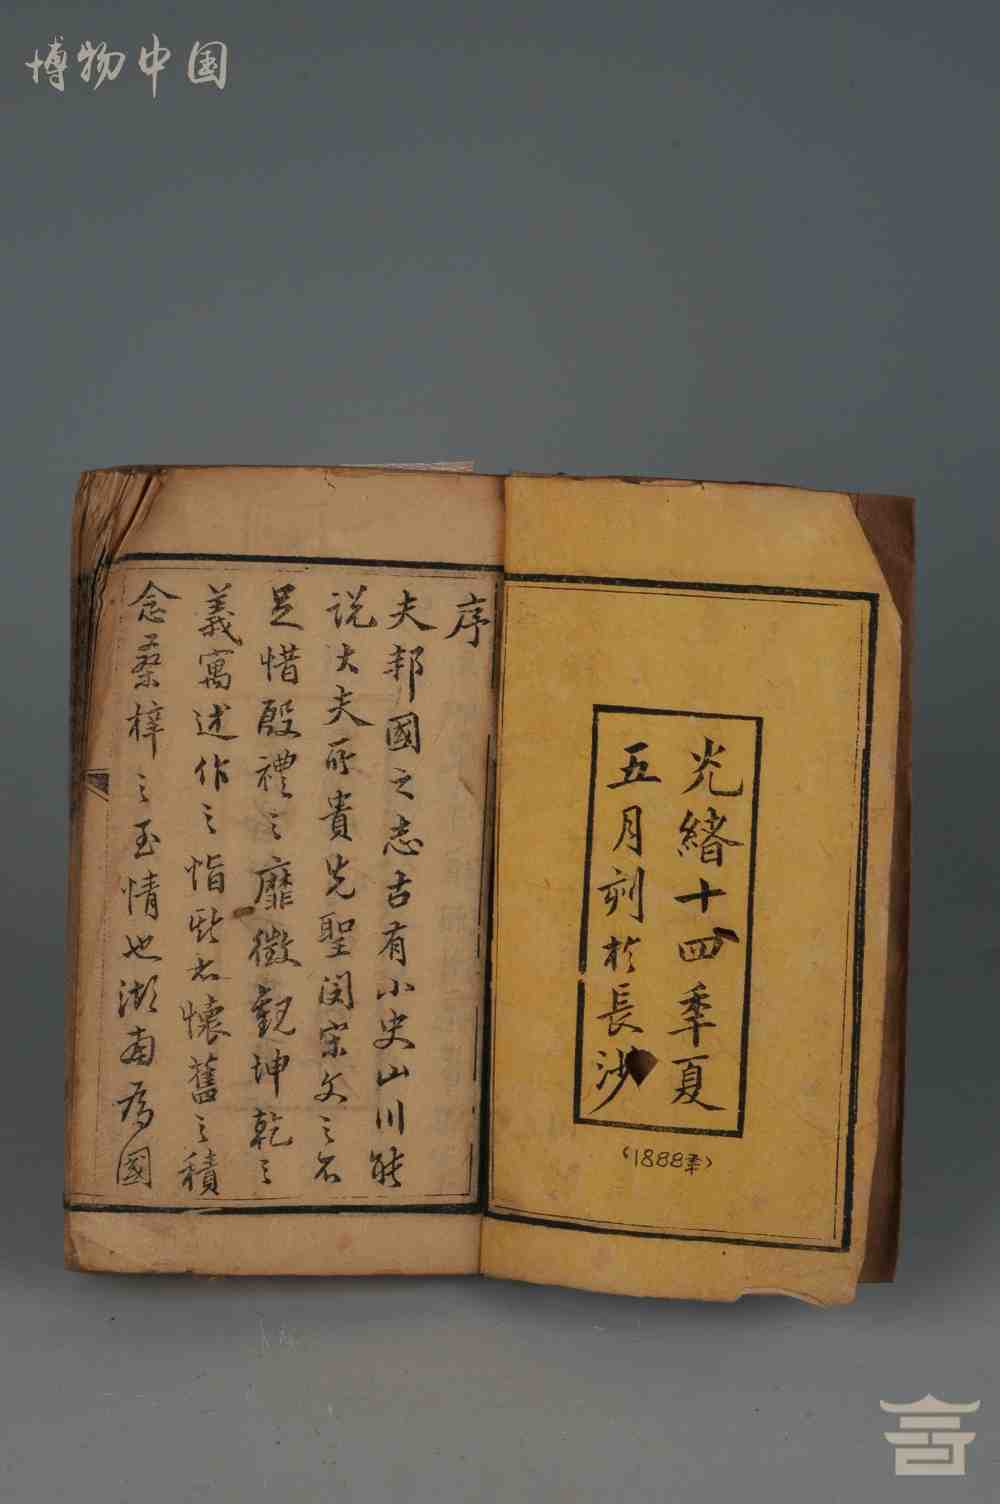 博物中国
光緒十四季夏
五月刻於長沙
(1888年)
序
夫邦國之志古有小史山川能
说大夫所貴先聖閔宋文之不
足惜殷禮之靡徵觀坤乾之
義寓述作之恉斯亦懷舊之積
念桑梓之至情也湖南為國